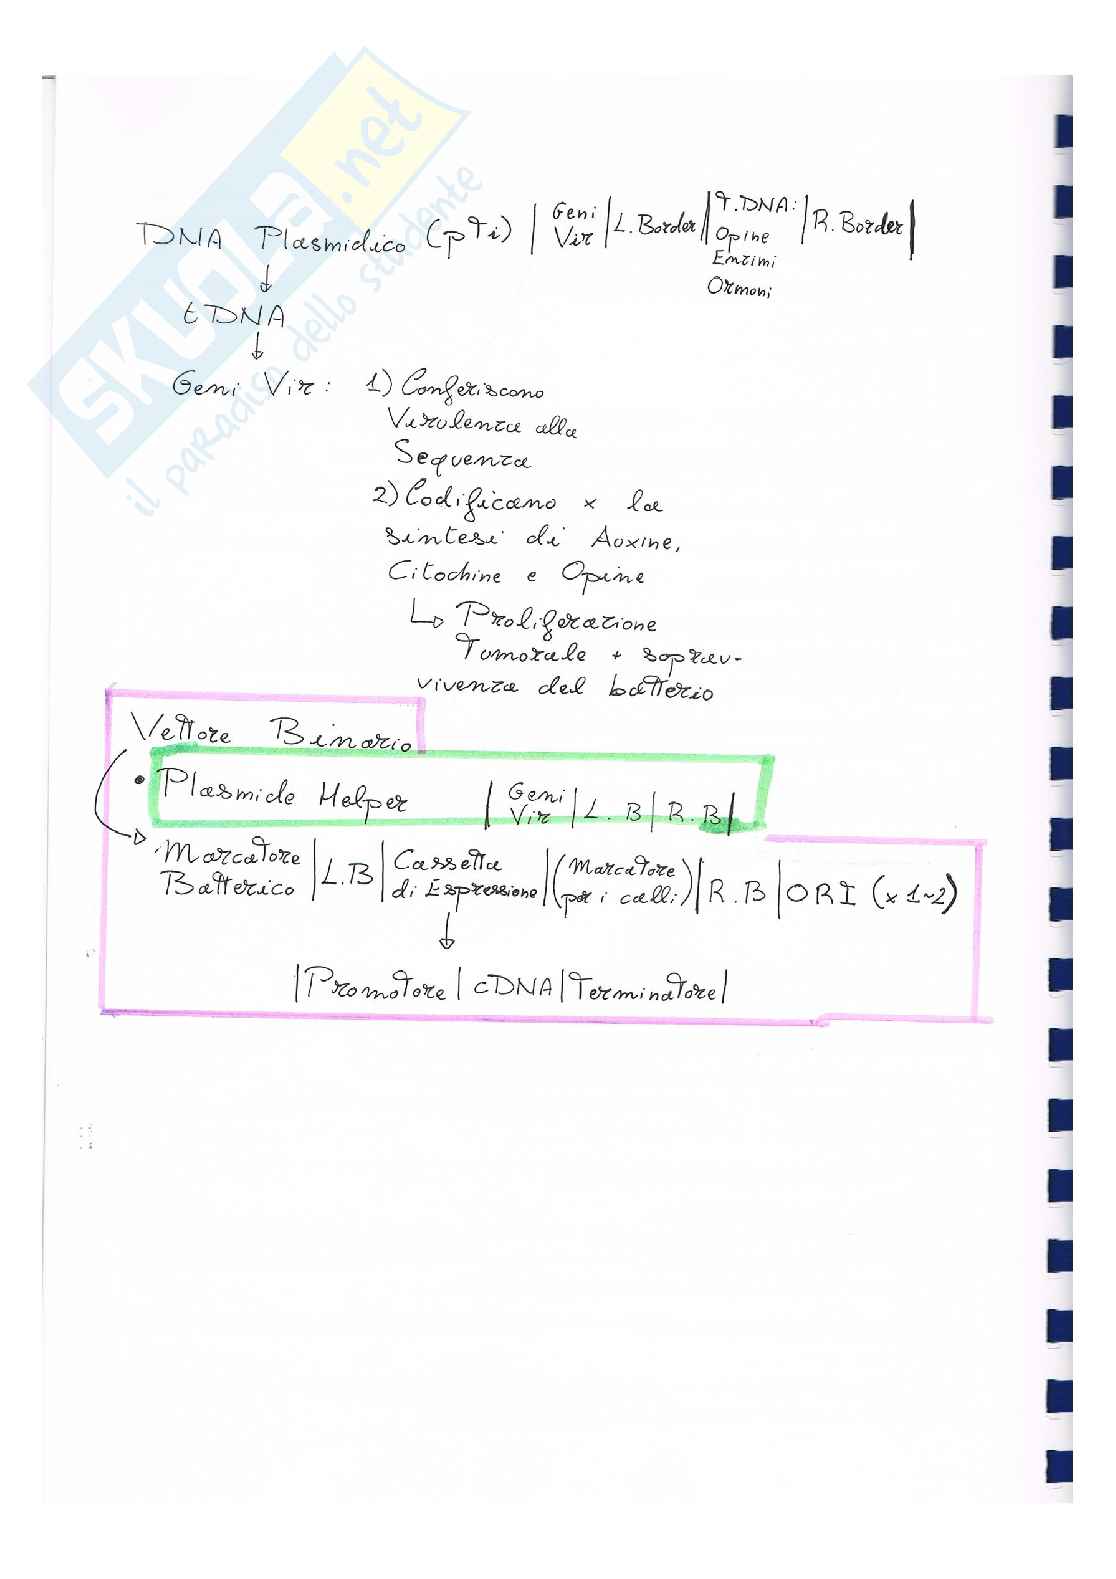 SKUOLA.net
il paradiso dello studente
DNA Plasmidico (pTi) | Geni Vir | L. Border | T.DNA: Opine Enzimi Ormoni | R. Border |
↓
tDNA
↓
Geni Vir: 1) Conferiscono
Virulenza alla
Sequenza
2) Codificano x la
sintesi di Auxine,
Citochine e Opine
↳ Proliferazione
Tumorale + soprav-
vivenza del batterio
Vettore Binario
• Plasmide Helper | Geni Vir | L. B | R. B |
Marcatore Batterico | L.B | Cassetta di Espressione | (Marcatore per i calli) | R.B | ORI (x 1-2)
↓
| Promotore | cDNA | Terminatore |